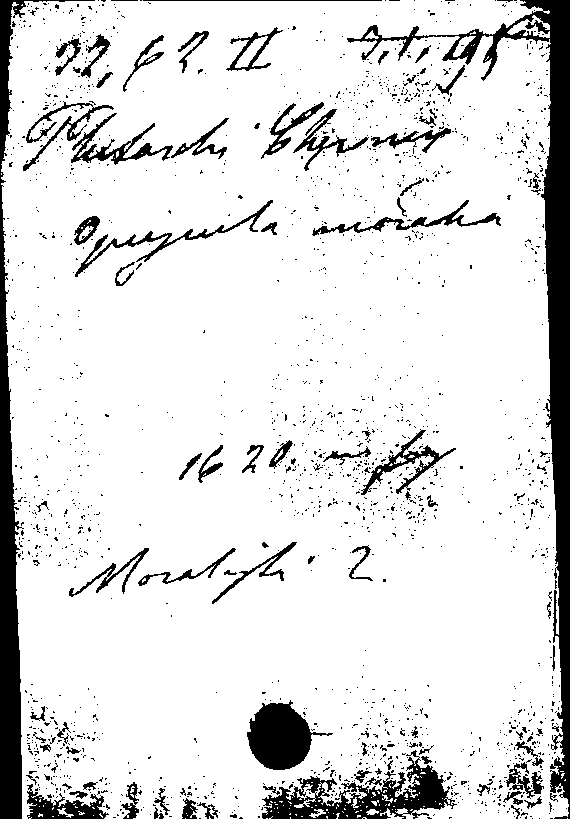 22, 62. II
Plutarchi Cheronei
Opuscula moralia
1620. in
Moralisti 2.